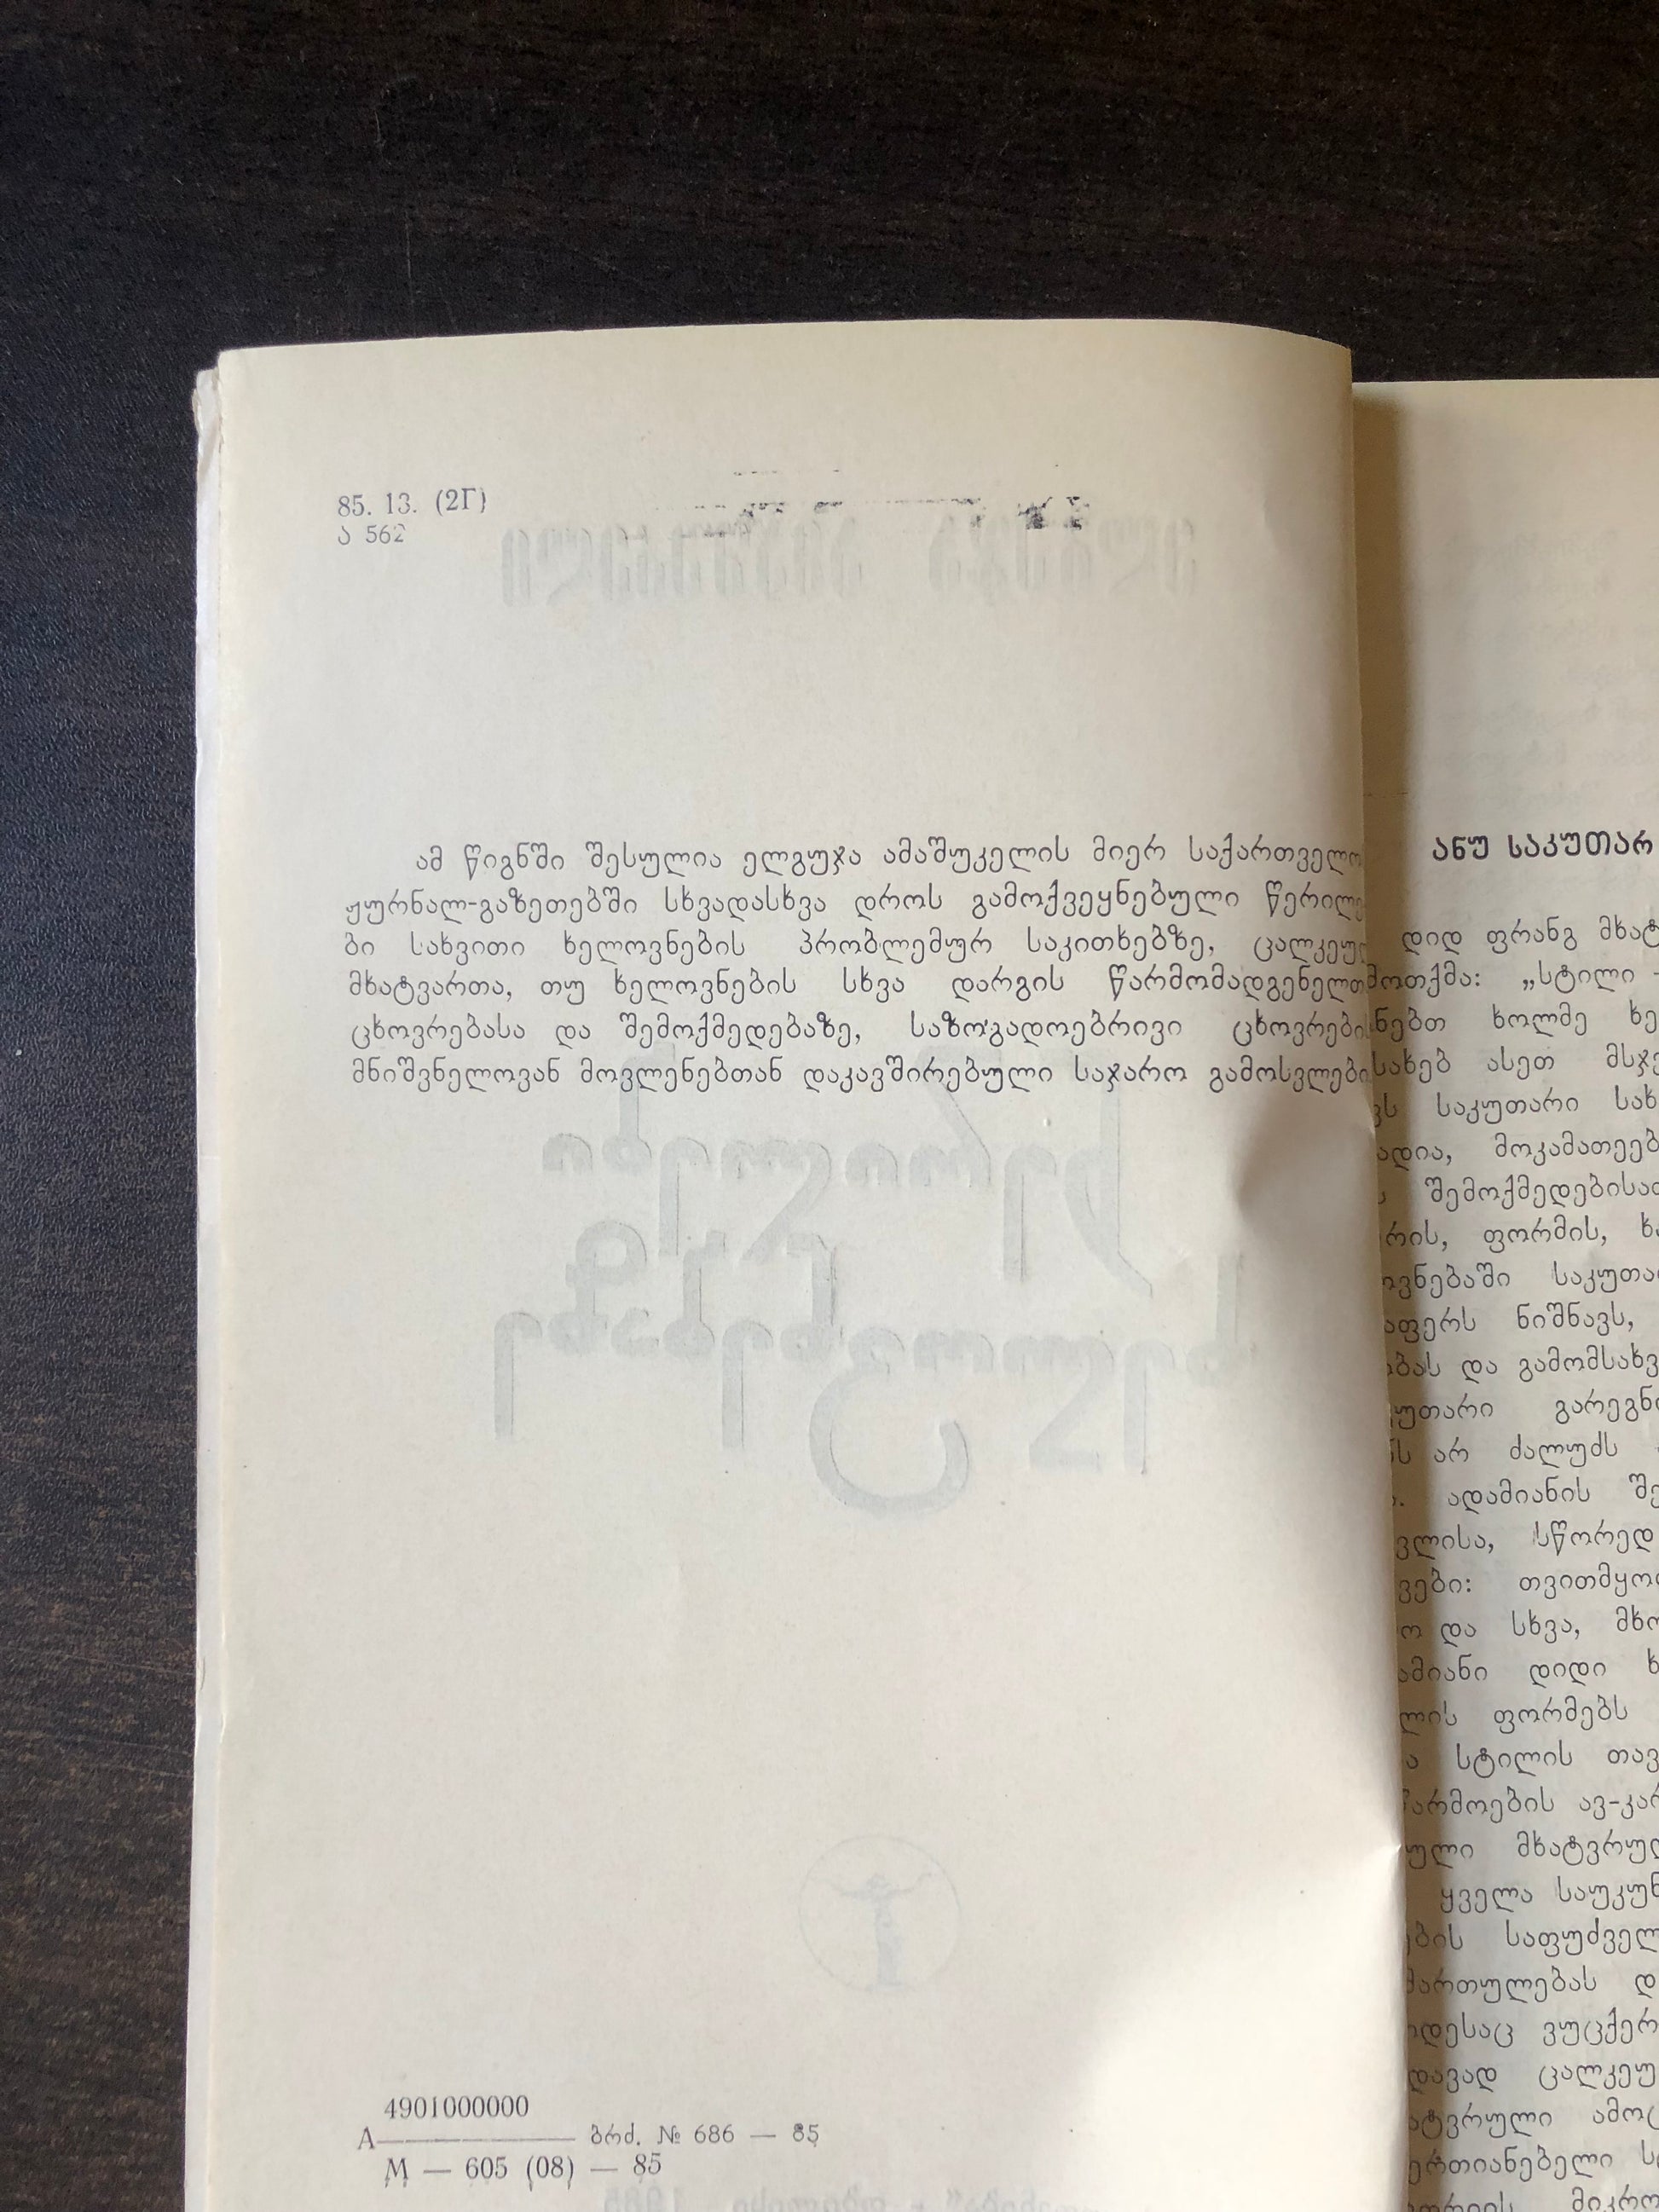 85. 13. (2Г)
ა 562
ამ წიგნში შესულია ელგუჯა ამაშუკელის მიერ საქართველო
ჟურნალ-გაზეთებში სხვადასხვა დროს გამოქვეყნებული წერილე
ბი სახვითი ხელოვნების პრობლემურ საკითხებზე, ცალკეულ
მხატვართა, თუ ხელოვნების სხვა დარგის წარმომადგენელთ
ცხოვრებასა და შემოქმედებაზე, საზოგადოებრივი ცხოვრების
მნიშვნელოვან მოვლენებთან დაკავშირებული საჯარო გამოსვლები
4901000000
А———— ბრძ. № 686 — 85
М — 605 (08) — 85
ანუ საკუთარ
დიდ ფრანგ
მოთქმა: „სტილი
ხოლმე
ასეთ
საკუთარი
მოკამათეებ
შემოქმედებისათ
რის, ფორმის,
ოვნებაში საკუთა
აფერს ნიშნავს,
ბას და გამომსახვ
უთარი გარეგნ
ს არ ძალუძს
ადამიანის შე
ვლისა, სწორედ
ვები: თვითმყო
ო და სხვა,
ამიანი დიდი
ლის ფორმებს
ა სტილის თავ
წარმოების ავ-კარ
ული მხატვრულ
ყველა საუკუნ
ბის საფუძველ
მართულებას დ
ოდესაც ვუცქერ
დავად ცალკეუ
ატვრული ამოც
ერთიანებელი
ორიის მიკრო